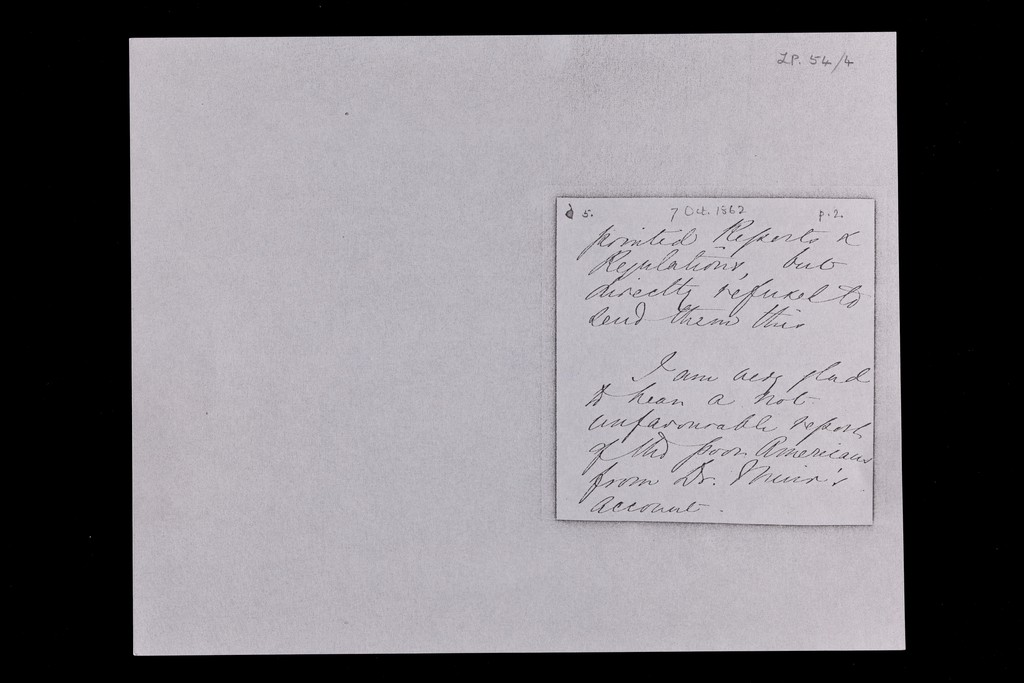 LP. 54/4
d 5. 7 Oct. 1862 p. 2.
printed Reports &
Regulations, but
directly refused to
send them this
I am very glad
to hear a not
unfavourable report
of the poor Americans
from Dr. Muir's
account.